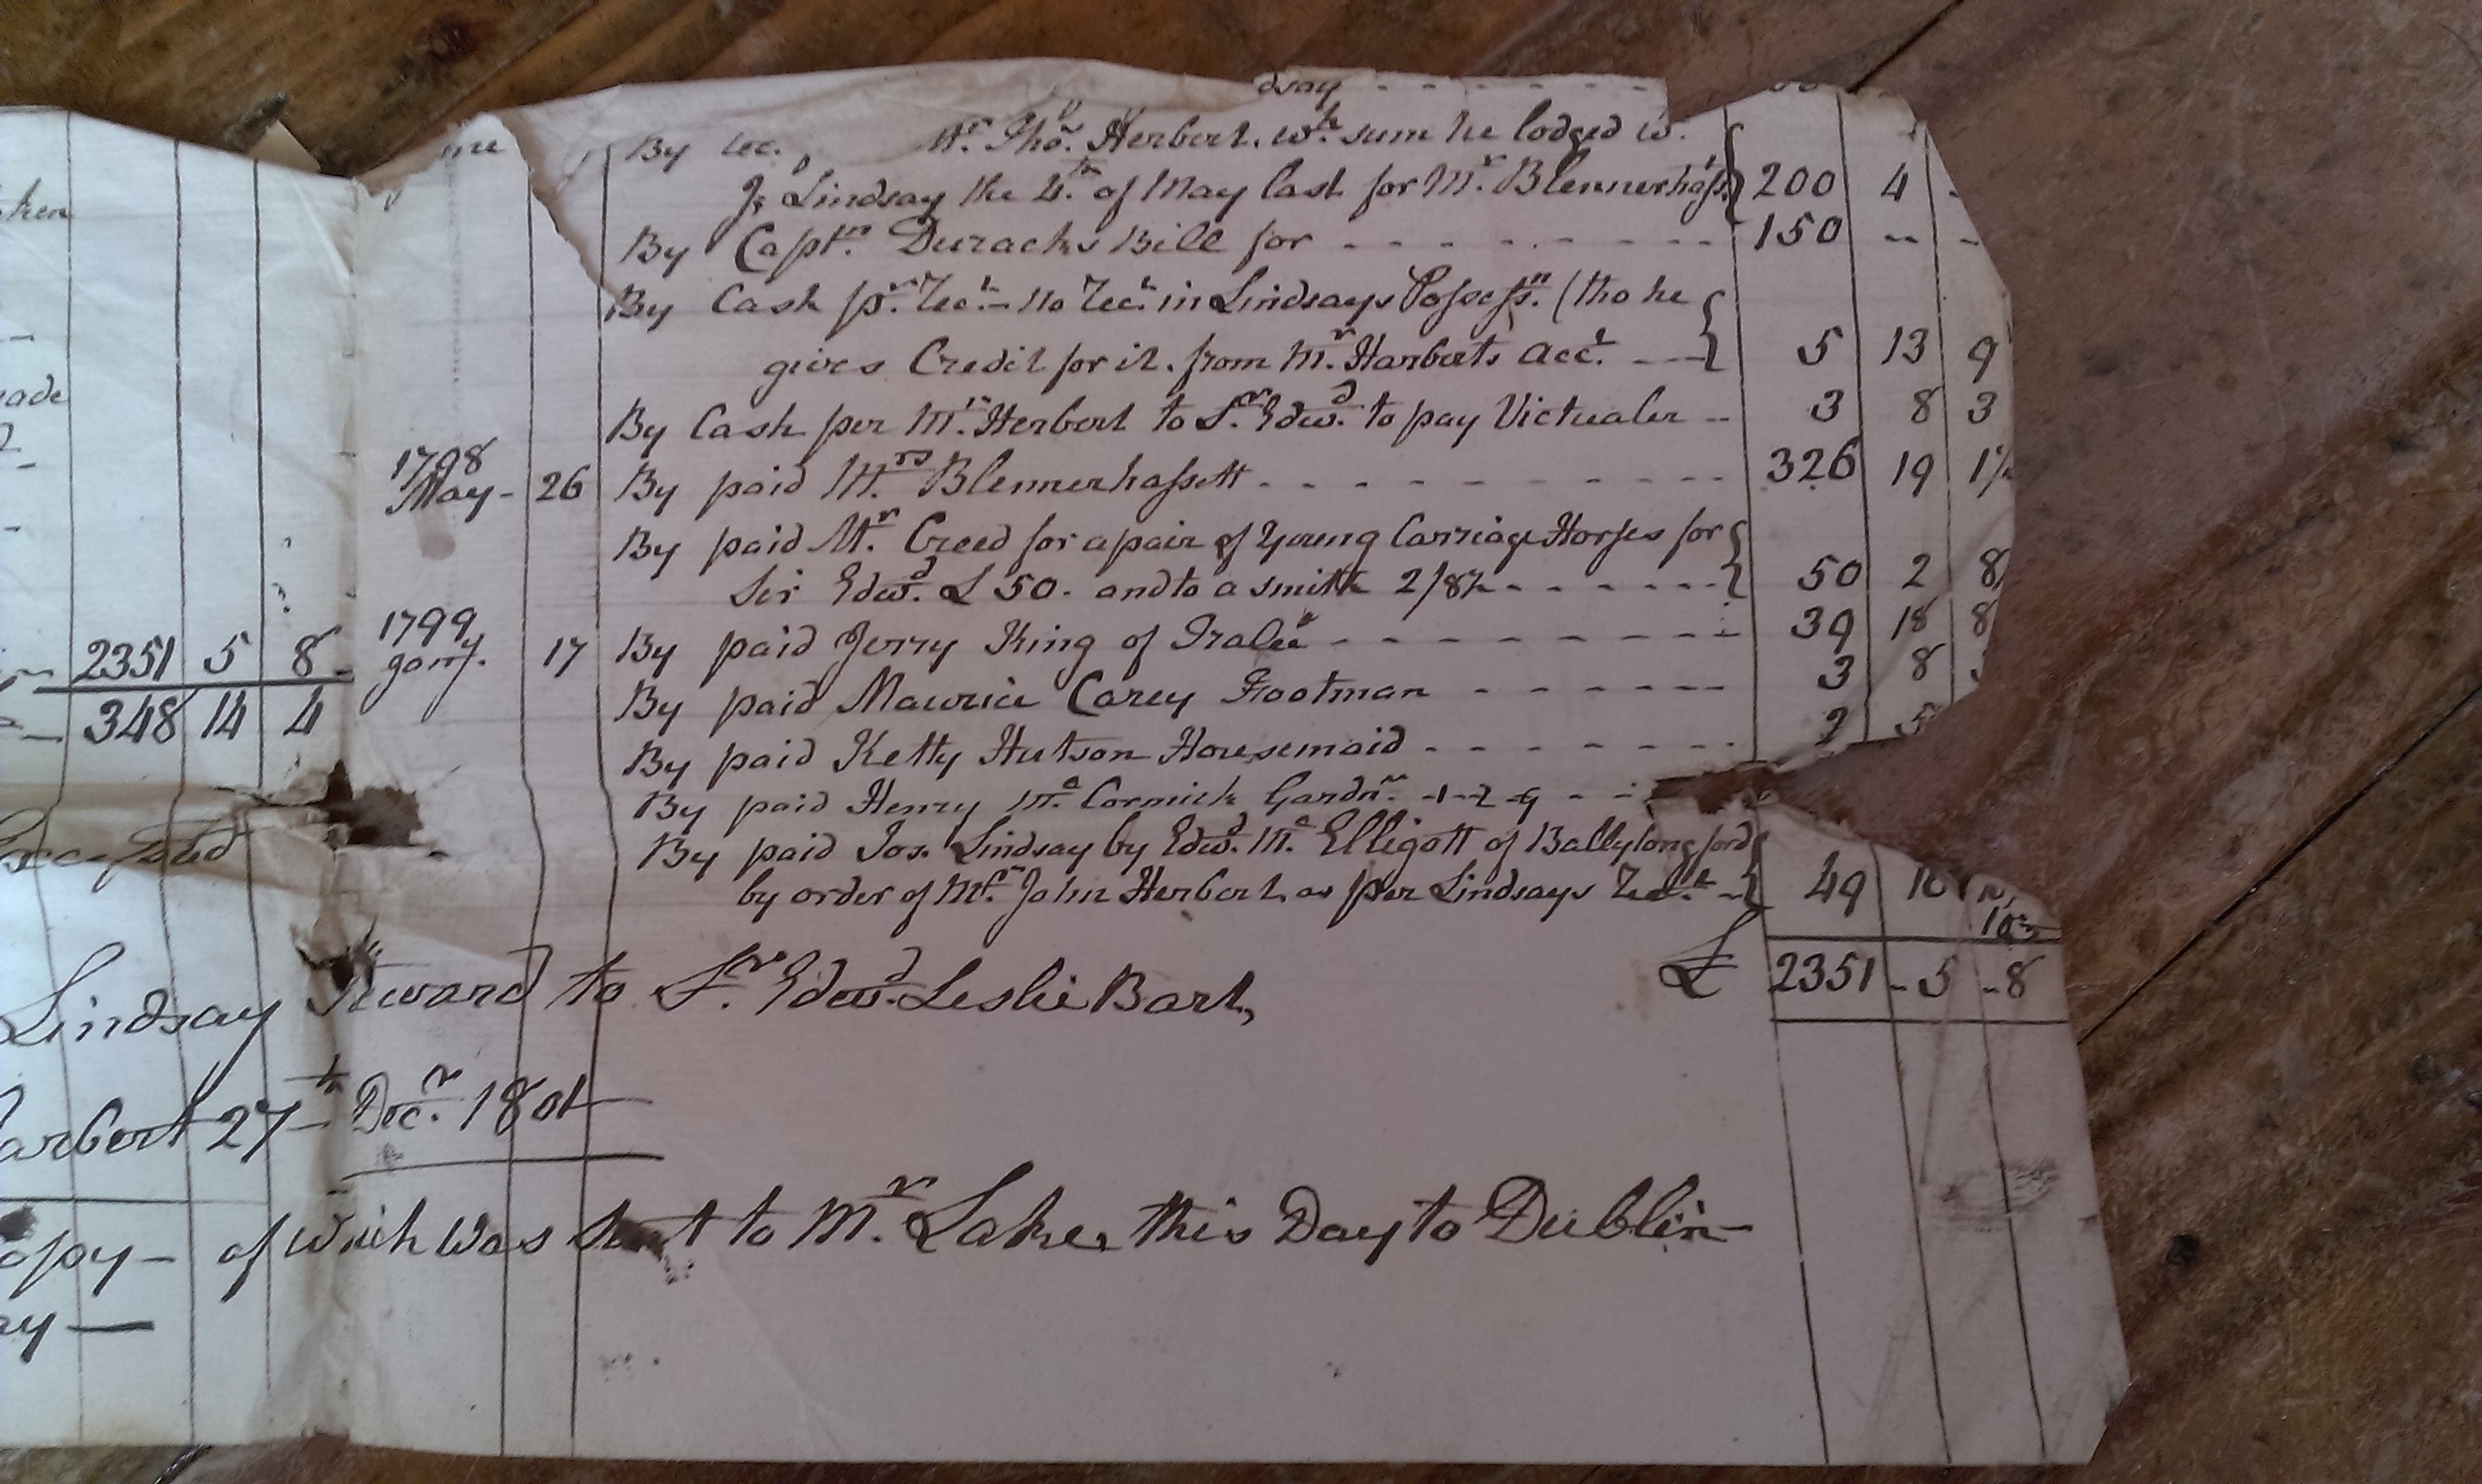 dsay - - - - - -
By Mr. Thos. Herbert. wh. sum he lodged w.
Js Lindsay the 4th. of May last for Mr. Blennerhasst 200 4 -
By Captn. Durachs Bill for - - - - - - - - - 150 -- -
By Cash pr. Rect. - no Rect. in Lindsays Possessn. (tho he
gives Credit for it. from Mr. Harberts Acct. - - - 5 13 9
By Cash per Mr. Herbert to Sr. Edwd. to pay Victualer -- 3 8 3
1798
May - 26 By paid Mrs. Blennerhassett - - - - - - - - - - 326 19 1½
By paid Mr. Creed for a pair of Young Carriage Horses for
Sir Edwd. £50. and to a smith 2/8½ - - - - - - 50 2 8
1799
Jany. 17 By paid Jerry King of Tralee - - - - - - - - - 39 18 8
By paid Maurice Carey Footman - - - - - - 3 8
By paid Ketty Hutson Housemaid - - - - - - - 2 5
By paid Henry Mc. Cormick Gardnr. -1-2-9 - - -
By paid Jos. Lindsay by Edwd. Mc. Elligott of Ballylongford
by order of Mr. John Herbert. as per Lindsays Rect. - 49 10
10½
£ 2351 - 5 - 8
ken
ade
2351 5 8
348 14 4
Accepted
Lindsay Steward to Sr. Edwd. Leslie Bart,
arbert 27th Decr. 1801
opy - of which was sent to Mr. Lake, this Day to Dublin -
ay —